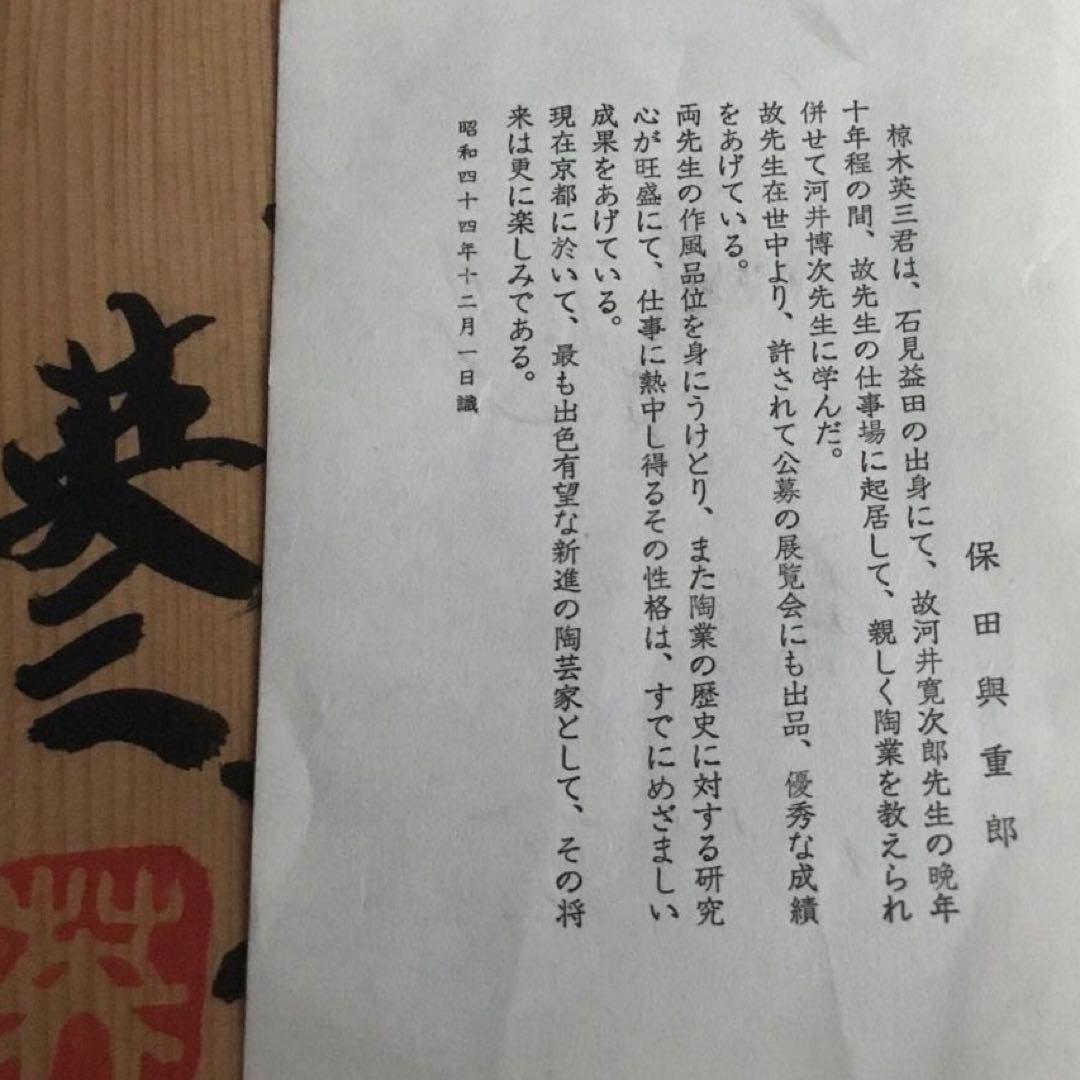 保田與重郎
椋木英三君は、石見益田の出身にて、故河井寛次郎先生の晩年
十年程の間、故先生の仕事場に起居して、親しく陶業を教えられ
併せて河井博次先生に学んだ。
故先生在世中より、許されて公募の展覧会にも出品、優秀な成績
をあげている。
両先生の作風品位を身にうけとり、また陶業の歴史に対する研究
心が旺盛にて、仕事に熱中し得るその性格は、すでにめざましい
成果をあげている。
現在京都に於いて、最も出色有望な新進の陶芸家として、その将
来は更に楽しみである。
昭和四十四年十二月一日識
英三